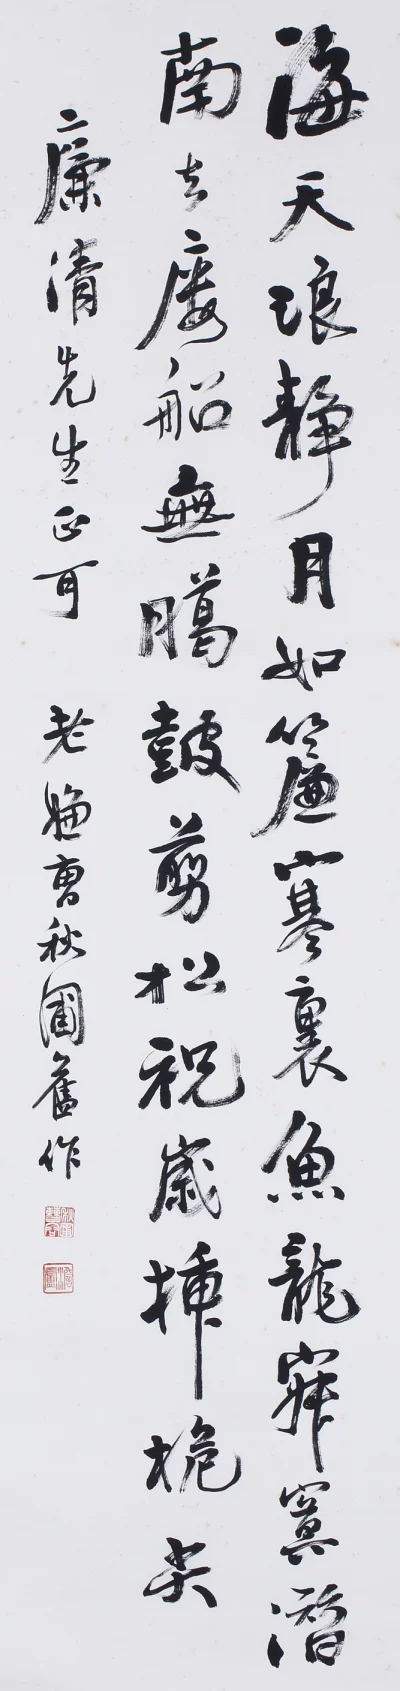 海天浪靜月如簾寒裏魚龍寐寞潛
南去廔船無臈鼓剪松祝歲揷桅尖
廉清先生正可
老嫌曹秋圃舊作